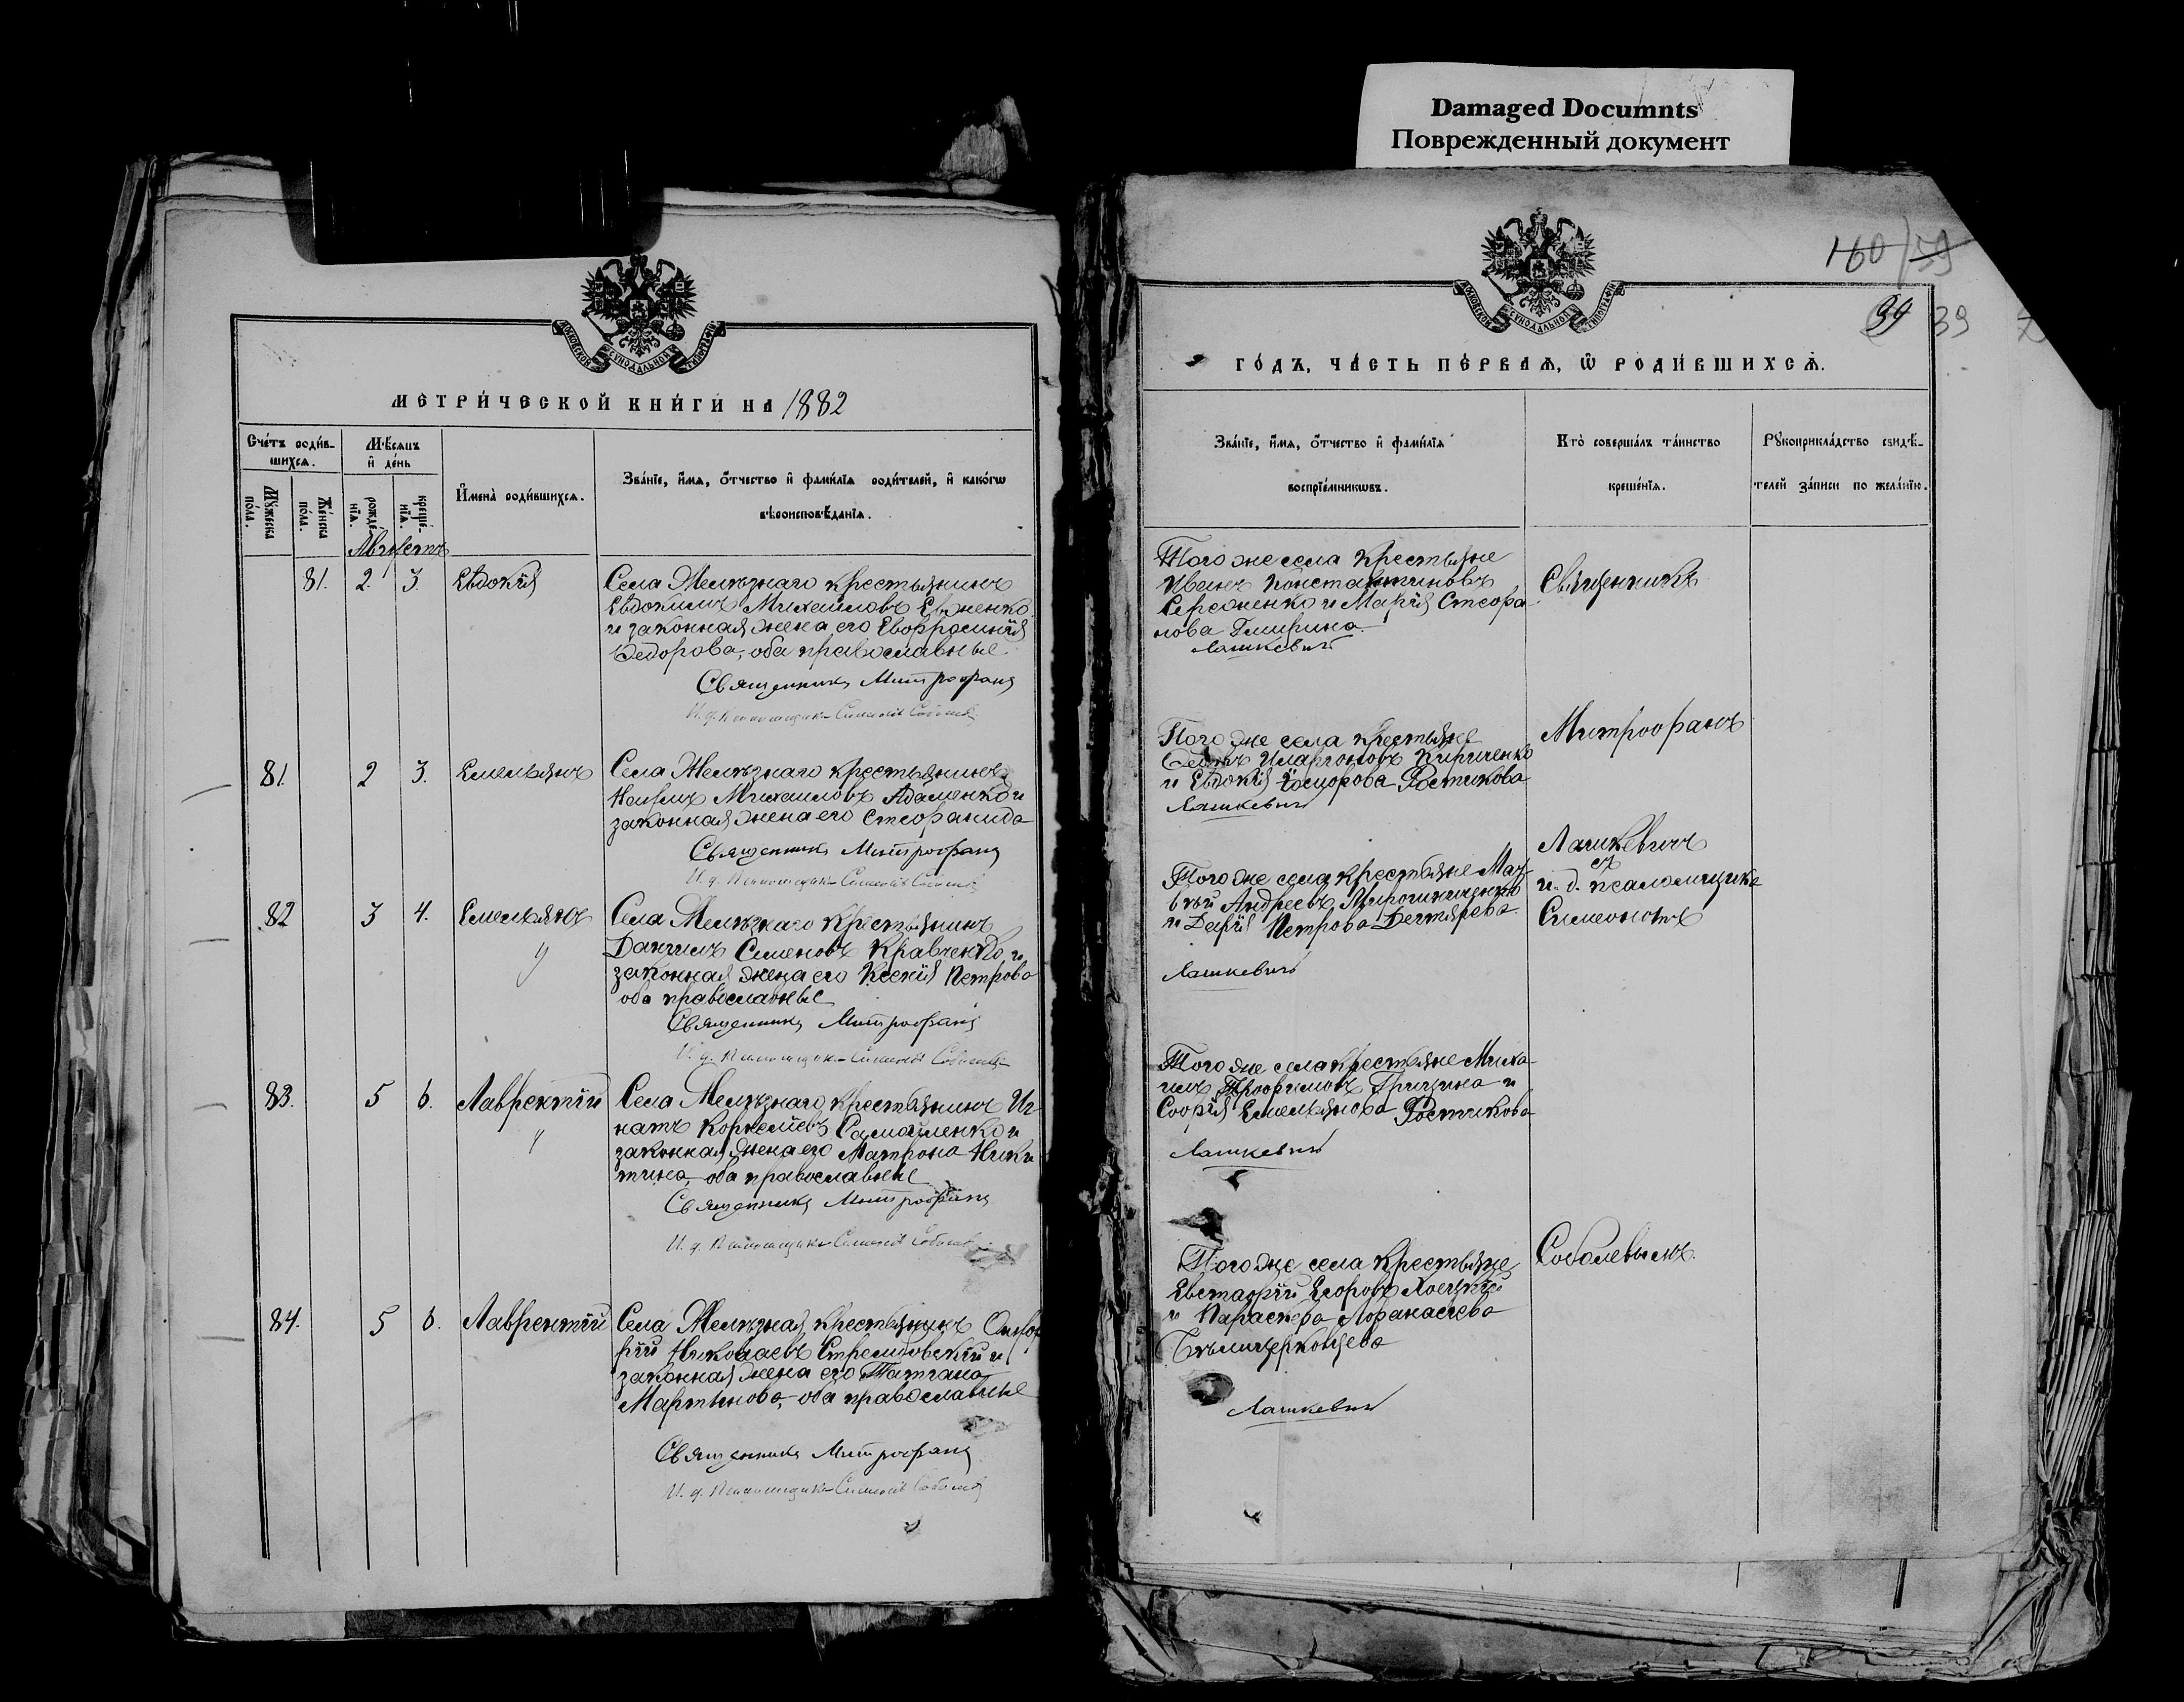 Damaged Documnts
Поврежденный документ
МОСКОВСКОЙ СУНОДАЛЬНОЙ ТИПОГРАФІИ
МЕТРИ́ЧЕСКОЙ КНИ́ГИ НА 1882
Сче́тъ роди́в-
шихсѧ.
Мѣ́сѧцъ
и҆ де́нь
Му́жеска
по́ла.
Же́нска
по́ла.
рожде́-
нїѧ.
креще́-
нїѧ.
И҆мена̀ роди́вшихсѧ.
Зва́нїе, и҆́мѧ, ѻ҆́тчество и҆ фами́лїѧ роди́телей, и҆ како́гѡ
вѣроисповѣ́данїѧ.
Августъ
81. 2. 3. Евдокія
Села Желѣзнаго крестьянинъ
Евдокимъ Михаиловъ
и законная жена его Евфросинія
Федорова, оба православные
Священникъ Митрофанъ
И. д. Псаломщика Симеонъ Соболевъ
81. 2 3. Емельянъ
Села Желѣзнаго крестьянинъ
Наумъ Михаиловъ Адаменко и
законная жена его Стефанида
Священникъ Митрофанъ
И. д. Псаломщика Симеонъ Соболевъ
82 3 4. Емельянъ
Села Желѣзнаго крестьянинъ
Даніилъ Семеновъ Кравченко и
законная жена его Ксенія Петрова
оба православные
Священникъ Митрофанъ
И. д. Псаломщика Симеонъ Соболевъ
83. 5 6. Лаврентій
Села Желѣзнаго крестьянинъ Иг-
натъ Корнеліевъ Самойленко и
законная жена его Матрона Ники
тина, оба православные
Священникъ Митрофанъ
И. д. Псаломщика Симеонъ Соболевъ
84. 5 6. Лаврентій
Села Желѣзная крестьянинъ Онуф
рій Николаевъ и
законная жена его Татіана
Мартынова, оба православные
Священникъ Митрофанъ
И. д. Псаломщика Симеонъ Соболевъ
160/39
39 39
МОСКОВСКОЙ СУНОДАЛЬНОЙ ТИПОГРАФІИ
ГО́ДЪ, ЧА́СТЬ ПЕ́РВАѦ, Ѡ҆ РОДИ́ВШИХСѦ.
Зва́нїе, и҆́мѧ, ѻ҆́тчество и҆ фами́лїѧ
воспрїе́мникѡвъ.
Кто̀ соверша́лъ та́инство
креще́нїѧ.
Рꙋкоприкла́дство свидѣ́-
телей за́писи по жела́нїю.
Того же села крестьяне
Иванъ Константиновъ
и Марія Стефа
нова
Лашкевичъ
Священникъ
Того же села крестьяне
Иларіоновъ Кириченко
и Евдокія Ростикова
Лашкевичъ
Митрофанъ
Лашкевичъ
съ
и. д. псаломщика
Симеономъ
Того же села крестьяне Мат-
вѣй Андреевъ Мирошниченко
и Дарія Петрова Дегтярева
Лашкевичъ
Того же села крестьяне Миха-
илъ Трофимовъ и
Софія Емельянова Ростикова
Лашкевичъ
Того же села крестьяне
Евстафій Егоровъ
и Параскева Афанасіева
Бѣлицерковцева
Соболевымъ.
Лашкевичъ